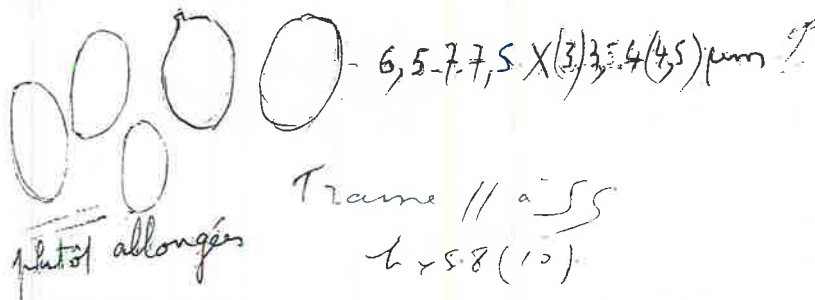 6,5-7-7,5 X(3)3,5-4(4,5) µm
Trame // à
plutôt allongées